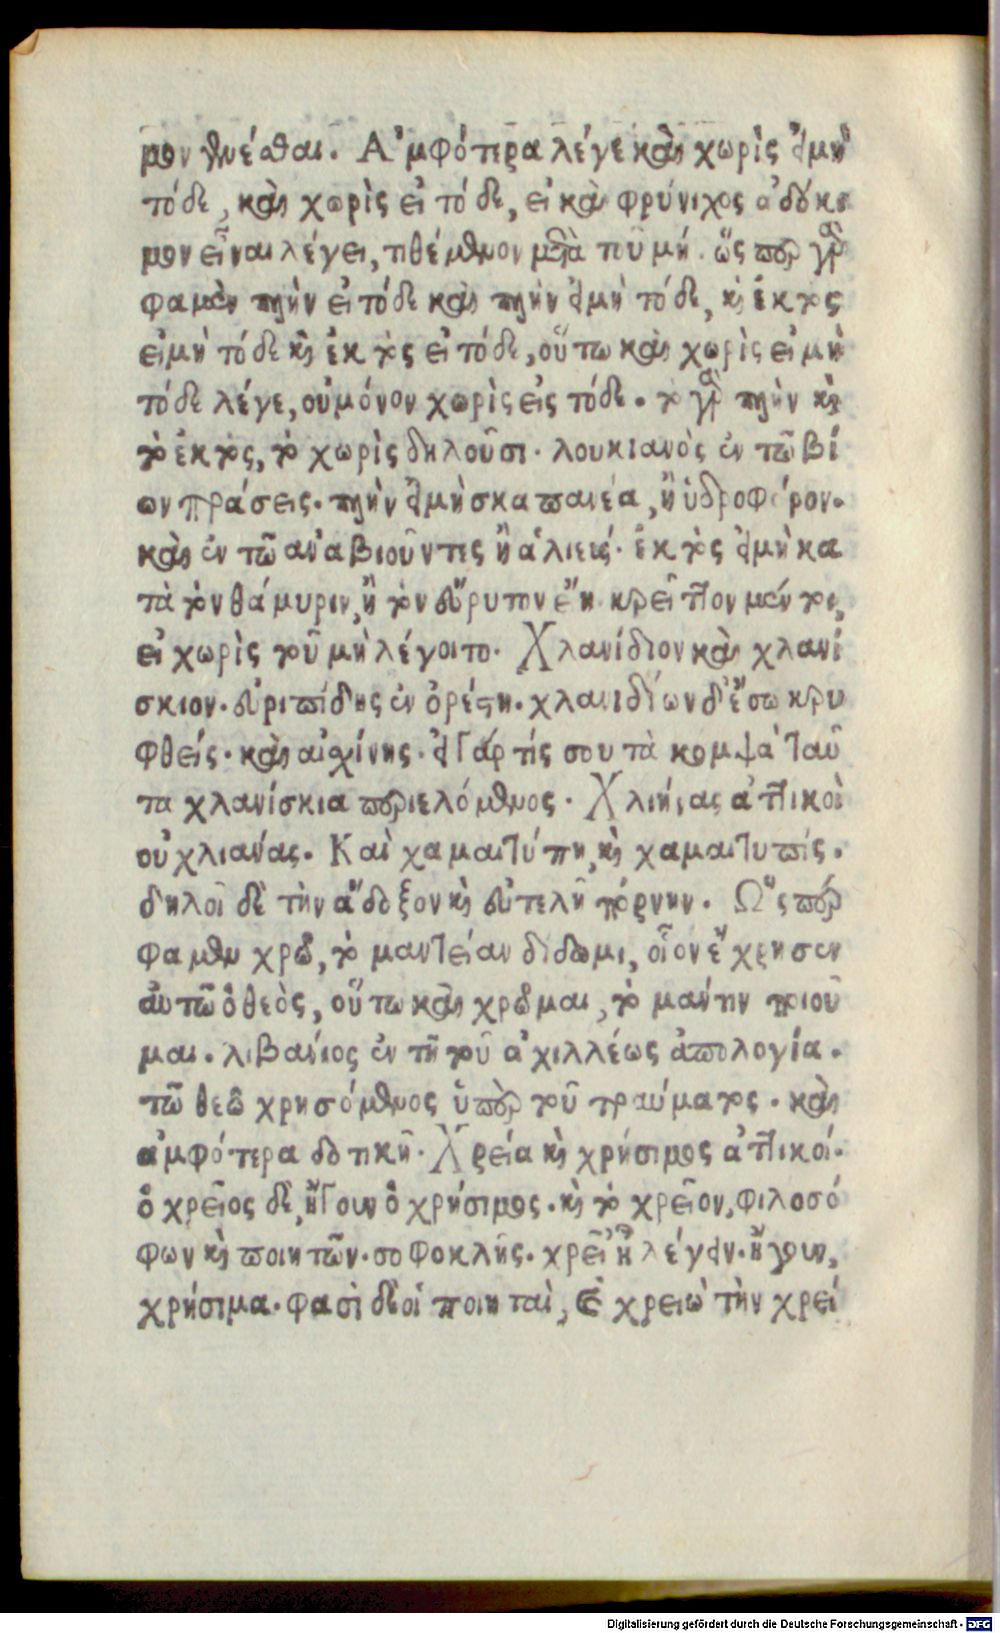 μον γενέσθαι. Ἀμφότερα λέγε καὶ χωρὶς εἰ μὴ
τόδε, καὶ χωρὶς εἰ τόδε, εἰ καὶ φρύνιχος ἀδόκι
μον εἶναι λέγει, τιθέμενον μετὰ τοῦ μή. ὥσπερ γὰρ
φαμὲν πλὴν εἰ τόδε καὶ πλὴν εἰ μὴ τόδε, καὶ ἐκτὸς
εἰ μὴ τόδε καὶ ἐκτὸς εἰ τόδε, οὕτω καὶ χωρὶς εἰ μὴ
τόδε λέγε, οὐ μόνον χωρὶς εἰς τόδε. τὸ γὰρ πλὴν καὶ
τὸ ἐκτὸς, τὸ χωρὶς δηλοῦσι. λουκιανὸς ἐν τῶ βί
ων πράσεις. πλὴν εἰ μὴ σκαπανέα, ἢ ὑδροφόρον.
καὶ ἐν τῶ ἀναβιοῦντες ἢ ἁλιεῖς. ἐκτὸς εἰ μὴ κα
τὰ τὸν θάμυριν, ἢ τὸν εὔρυτον ἔη. κρεῖττον μέντοι,
εἰ χωρὶς τοῦ μὴ λέγοιτο. Χλανίδιον καὶ χλανί
σκιον. εὐριπίδης ἐν ὀρέστη. χλανιδίων δ' ἔσω κρυ
φθείς. καὶ αἰσχίνης. εἰ γάρ τίς σου τὰ κομψὰ ταῦ
τα χλανίσκια περιελόμενος. Χλιήνας ἀττικοὶ
οὐ χλιανάς. Καὶ χαμαιτύπη, καὶ χαμαιτυπίς.
δηλοῖ δὲ τὴν ἄδοξον καὶ εὐτελῆ πόρνην. Ὥσπερ
φαμὲν χρῶ, τὸ μαντείαν δίδωμι, οἷον ἔχρησεν
αὐτῶ ὁ θεὸς, οὕτω καὶ χρῶμαι, τὸ μάντιν ποιοῦ
μαι. λιβάνιος ἐν τῆ τοῦ ἀχιλλέως ἀπολογία.
τῶ θεῶ χρησόμενος ὑπὲρ τοῦ τραύματος. καὶ
ἀμφότερα δοτικῆ. Χρεία καὶ χρήσιμος ἀττικοί.
ὁ χρεῖος δὲ, ἤγουν ὁ χρήσιμος. καὶ τὸ χρεῖον, φιλοσό
φων καὶ ποιητῶν. σοφοκλῆς. χρεῖ' ἢ λέγειν. ἤγουν,
χρήσιμα. φασὶ δὲ οἱ ποιηταὶ, καὶ χρειὼ τὴν χρεί
Digitalisierung gefördert durch die Deutsche Forschungsgemeinschaft - DFG